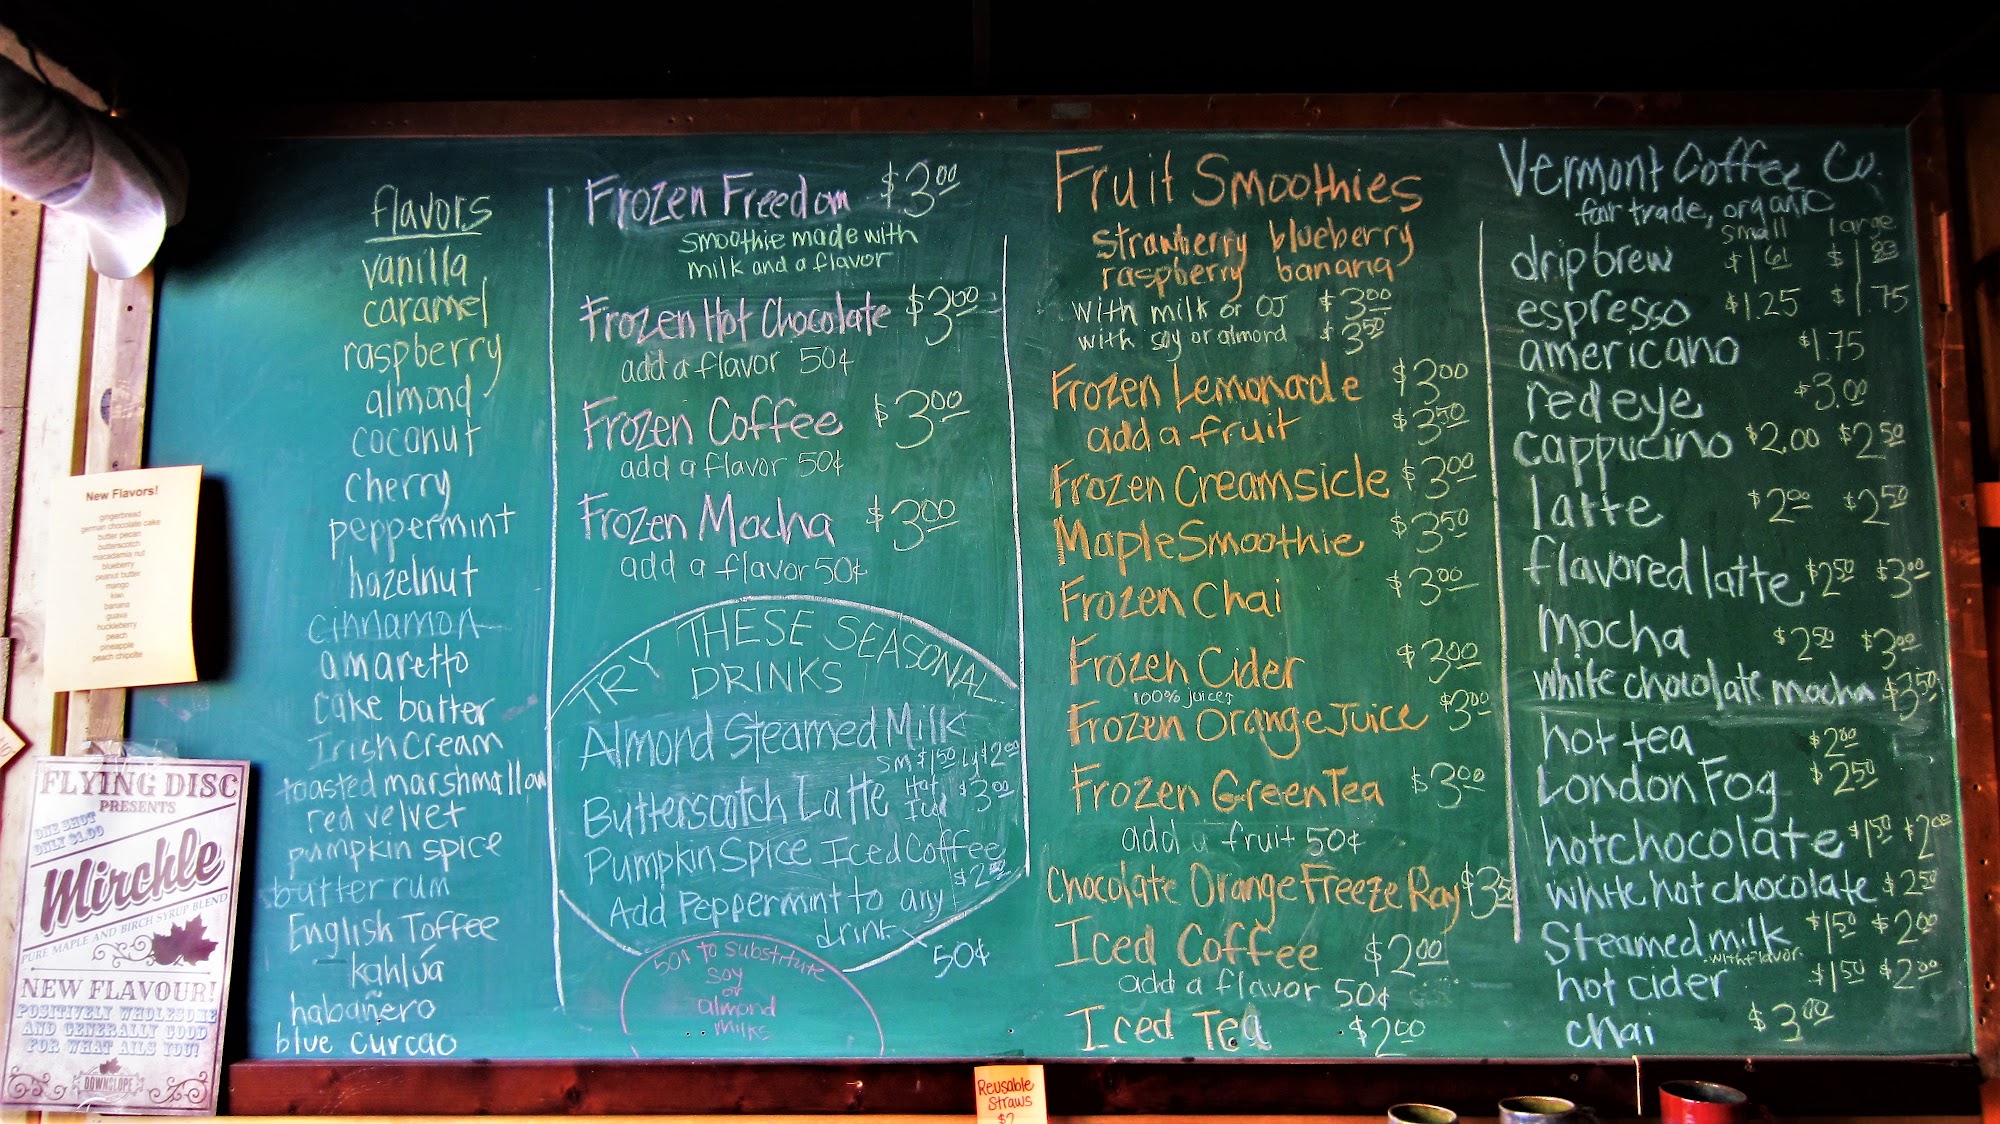 flavors
vanilla
caramel
raspberry
almond
coconut
cherry
peppermint
hazelnut
cinnamon
amaretto
cake batter
Irish Cream
toasted marshmallow
red velvet
pumpkin spice
butter rum
English Toffee
kahlúa
habañero
blue curcao
Frozen Freedom $3.00
smoothie made with
milk and a flavor
Frozen Hot Chocolate $3.00
add a flavor 50¢
Frozen Coffee $3.00
add a flavor 50¢
Frozen Mocha $3.00
add a flavor 50¢
TRY THESE SEASONAL
DRINKS
Almond Steamed Milk
sm $1.50 Lg $2.00
Butterscotch Latte Hot Iced $3.00
Pumpkin Spice Iced Coffee
$2.00
Add Peppermint to any
drink
50¢
50¢ to substitute
soy
or
almond
milks
Fruit Smoothies
strawberry blueberry
raspberry banana
with milk or OJ $3.00
with soy or almond $3.50
Frozen Lemonade $3.00
add a fruit $3.50
Frozen Creamsicle $3.00
Maple Smoothie $3.50
Frozen Chai $3.00
Frozen Cider $3.00
100% juices
Frozen Orange Juice $3.00
Frozen Green Tea $3.00
add a fruit 50¢
Chocolate Orange Freeze Ray $3.50
Iced Coffee $2.00
add a flavor 50¢
Iced Tea $2.00
Vermont Coffee Co.
fair trade, organic
small large
drip brew $1.61 $1
espresso $1.25 $1.75
americano $1.75
redeye $3.00
cappucino $2.00 $2.50
latte $2.00 $2.50
flavored latte $2.50 $3.00
mocha $2.50 $3.00
white chocolate mocha $3.50
hot tea $2.00
London Fog $2.50
hot chocolate $1.50 $2.00
white hot chocolate $2.50
Steamed milk $1.50 $2.00
with flavor
hot cider $1.50 $2.00
chai $3.00
New Flavors!
gingerbread
german chocolate cake
butter pecan
butterscotch
macadamia nut
blueberry
peanut butter
mango
kiwi
banana
guava
huckleberry
peach
pineapple
peach chipotle
FLYING DISC
PRESENTS
ONE SHOT
ONLY $1.00
Mirchle
PURE MAPLE AND BIRCH SYRUP BLEND
NEW FLAVOUR!
POSITIVELY WHOLESOME
AND GENERALLY GOOD
FOR WHAT AILS YOU!
DOWNSLOPE
Reusable
Straws
$2